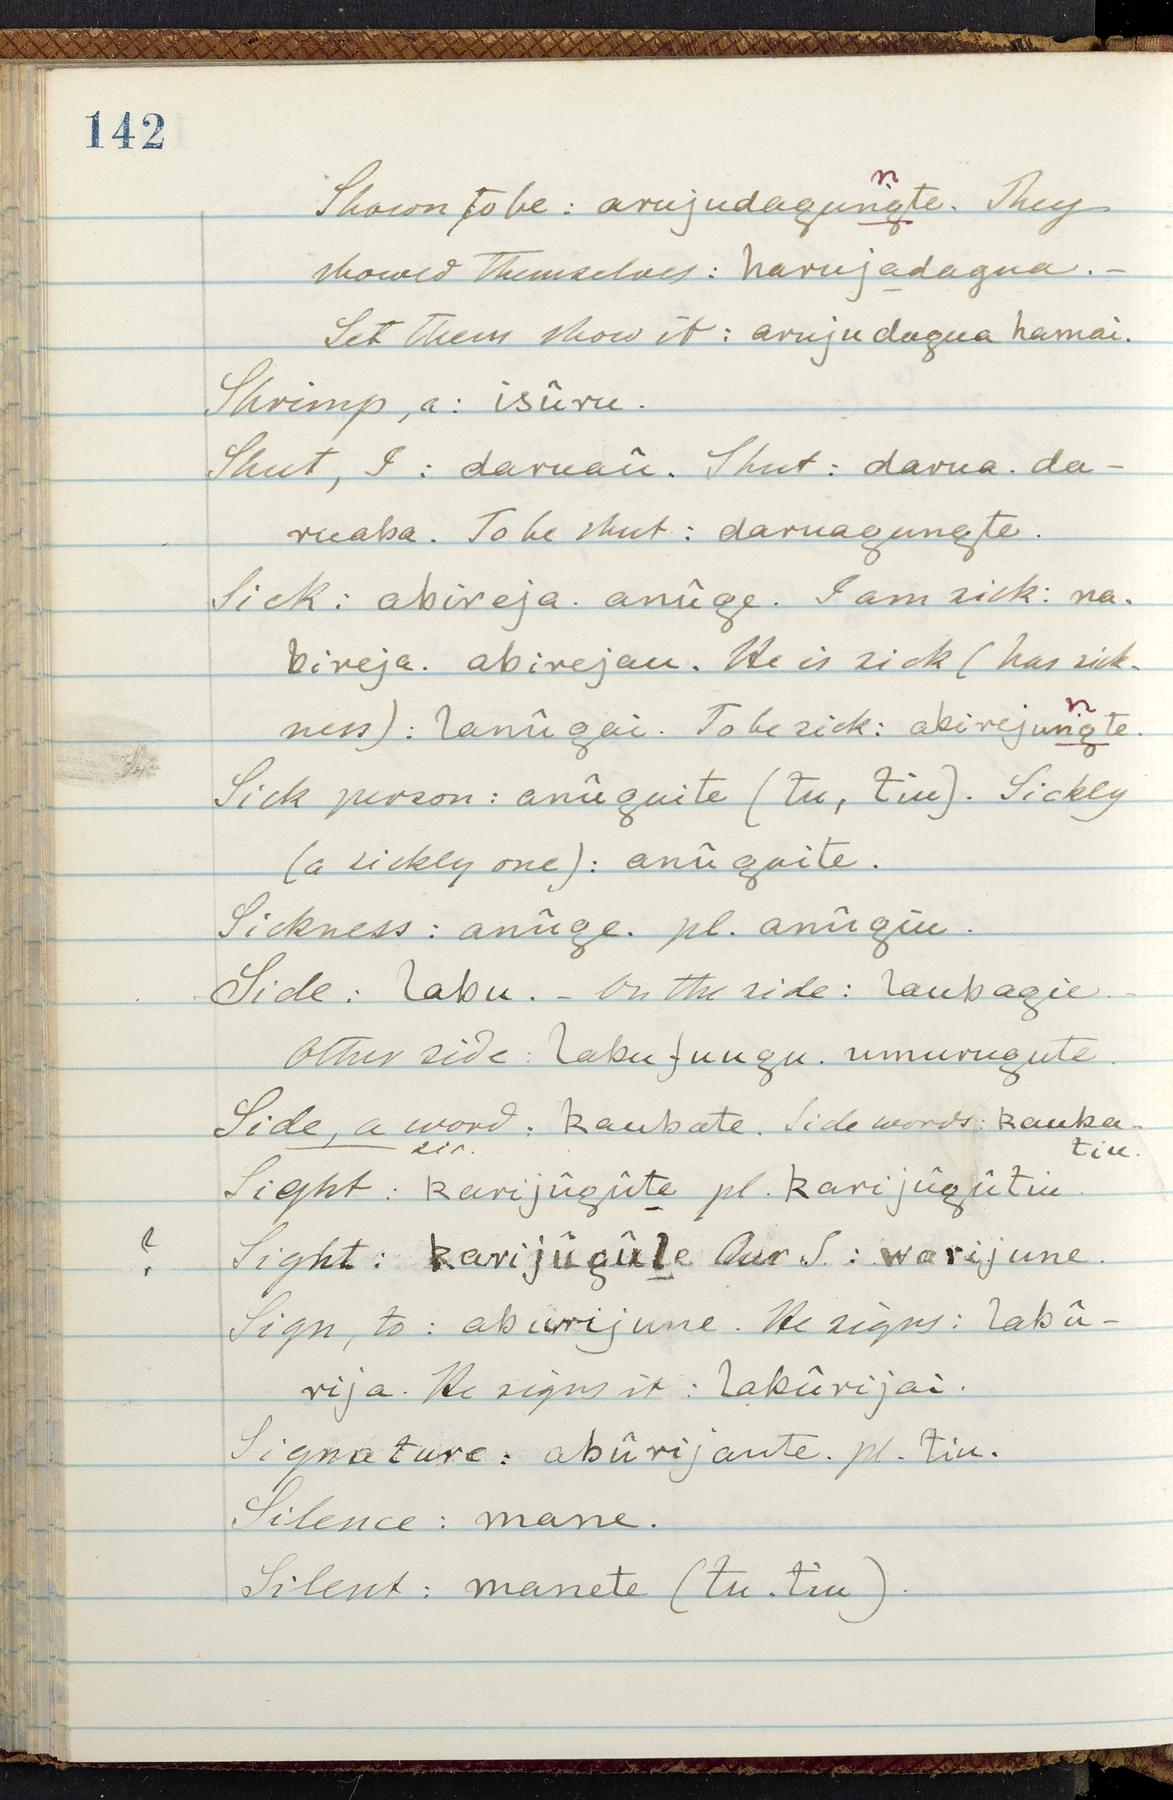 142
n
Shown to be: arujudagungte. They
showed themselves: harujadagua. -
Let them show it: arujudagua hamai.
Shrimp, a: isûru.
Shut, I: daruaû. Shut: darua. da-
ruaba. To be shut: daruagungte.
Sick: abireja. anûge. I am sick: na.
bireja. abirejau. He is sick (has sick-
n
ness): lanûgai. To be sick: abirejungte.
Sick person: anûguite (tu, tiu). Sickly
(a sickly one): anûguite.
Sickness: anûge. pl. anûgiu.
Side: labu. - On the side: laubagie. -
Other side: labu umurugute.
Side, a word: kaubate. Side words: kauba-
sic. tiu.
Sight: karijûgûte pl. karijûgûtiu.
? Sight: karijûgûle Our S.: warijune.
Sign, to: aburijune. He signs: labû-
rija. He signs it: labûrijai.
Signature: abûrijaute. pl. tiu.
Silence: mane.
Silent: manete (tu. tiu).